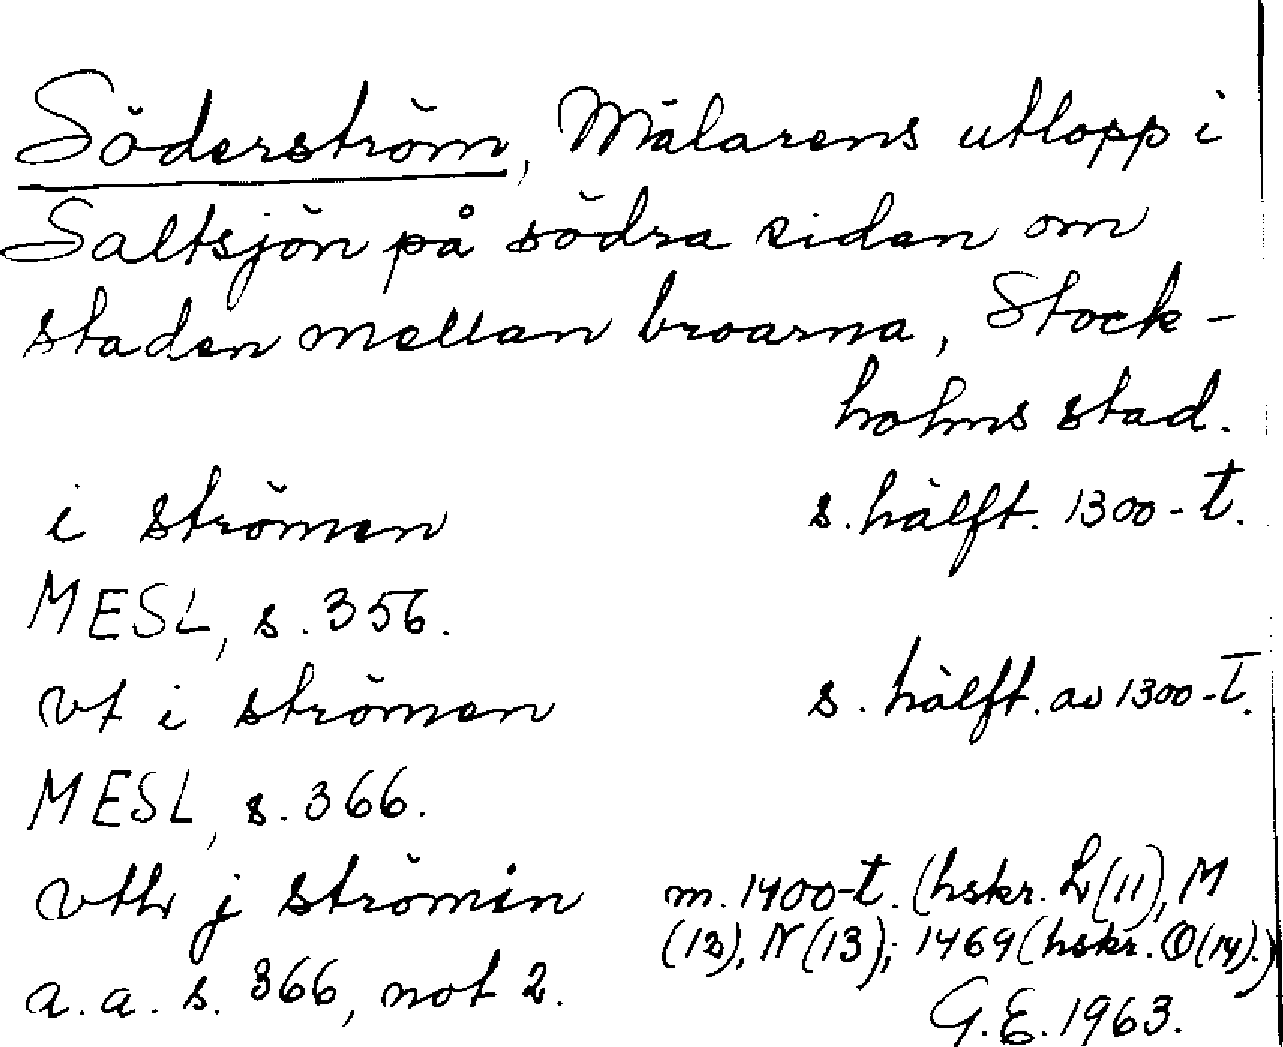 Söderström, Mälarens utlopp i
Saltsjön på södra sidan om
staden mellan broarna, Stock-
holms stad.
i strömen s. hälft. 1300-t.
MESL, s. 356.
vt i strömen s. hälft. av 1300-t.
MESL, s. 366.
vth j strömin m. 1400-t. (hskr. L (11), M
(12), N (13); 1469 (hskr. O (14).)
a. a. s. 366, not 2.
G. E. 1963.